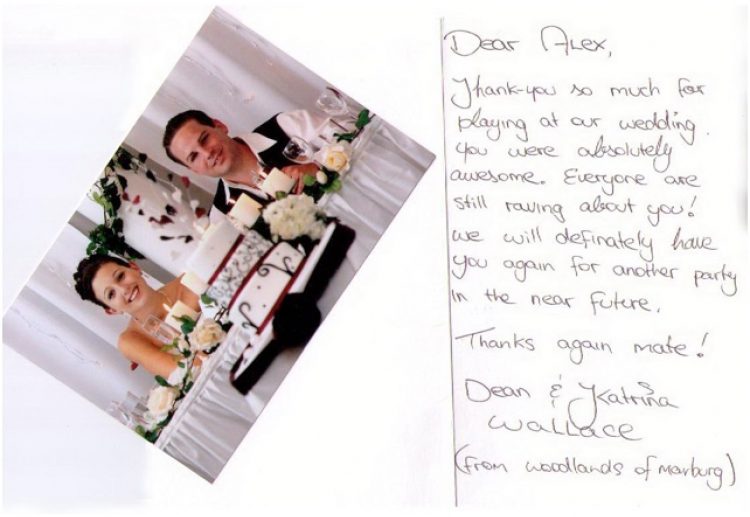 Dear Alex,
Thank-you so much for
playing at our wedding.
You were absolutely
awesome. Everyone are
still raving about you!
we will definately have
you again for another party
in the near future.
Thanks again mate!
Dean & Katrina
Wallace
(from woodlands of marburg)